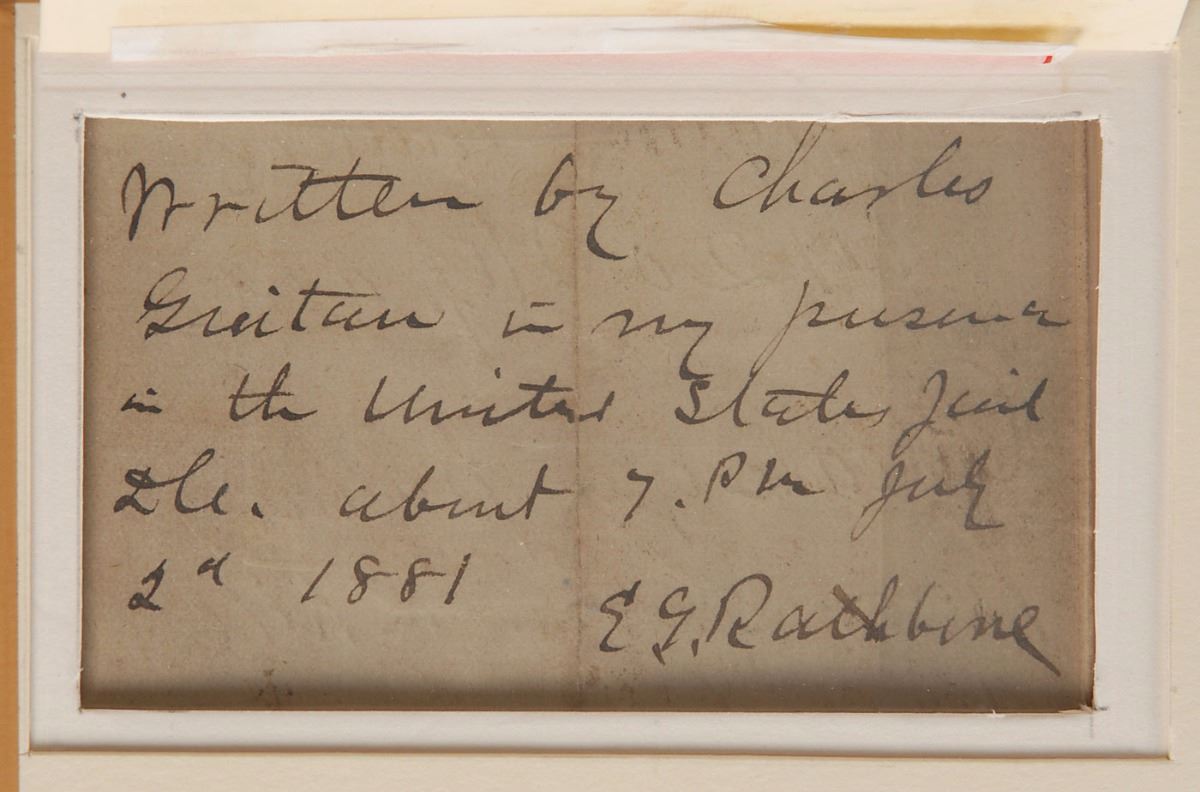 Written by Charles
Guitau in my presence
in the United States Jail
D.C. about 7. PM July
2d 1881
E G. Rathbone